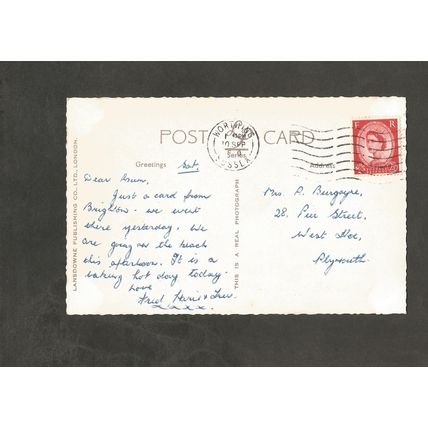 POST CARD
WORTHING
10 SEP
SUSSEX
Series
Greetings
Address
E R
Sat.
Dear Mum,
Just a card from
Brighton - we went
there yesterday. We
are going on the beach
this afternoon. It is a
baking hot day today.
Love
Fred
x.x.x.x.
Mrs. P. Burgoyne,
28. Pier Street,
West Hoe,
Plymouth.
THIS IS A REAL PHOTOGRAPH
LANSDOWNE PUBLISHING CO., LTD., LONDON.